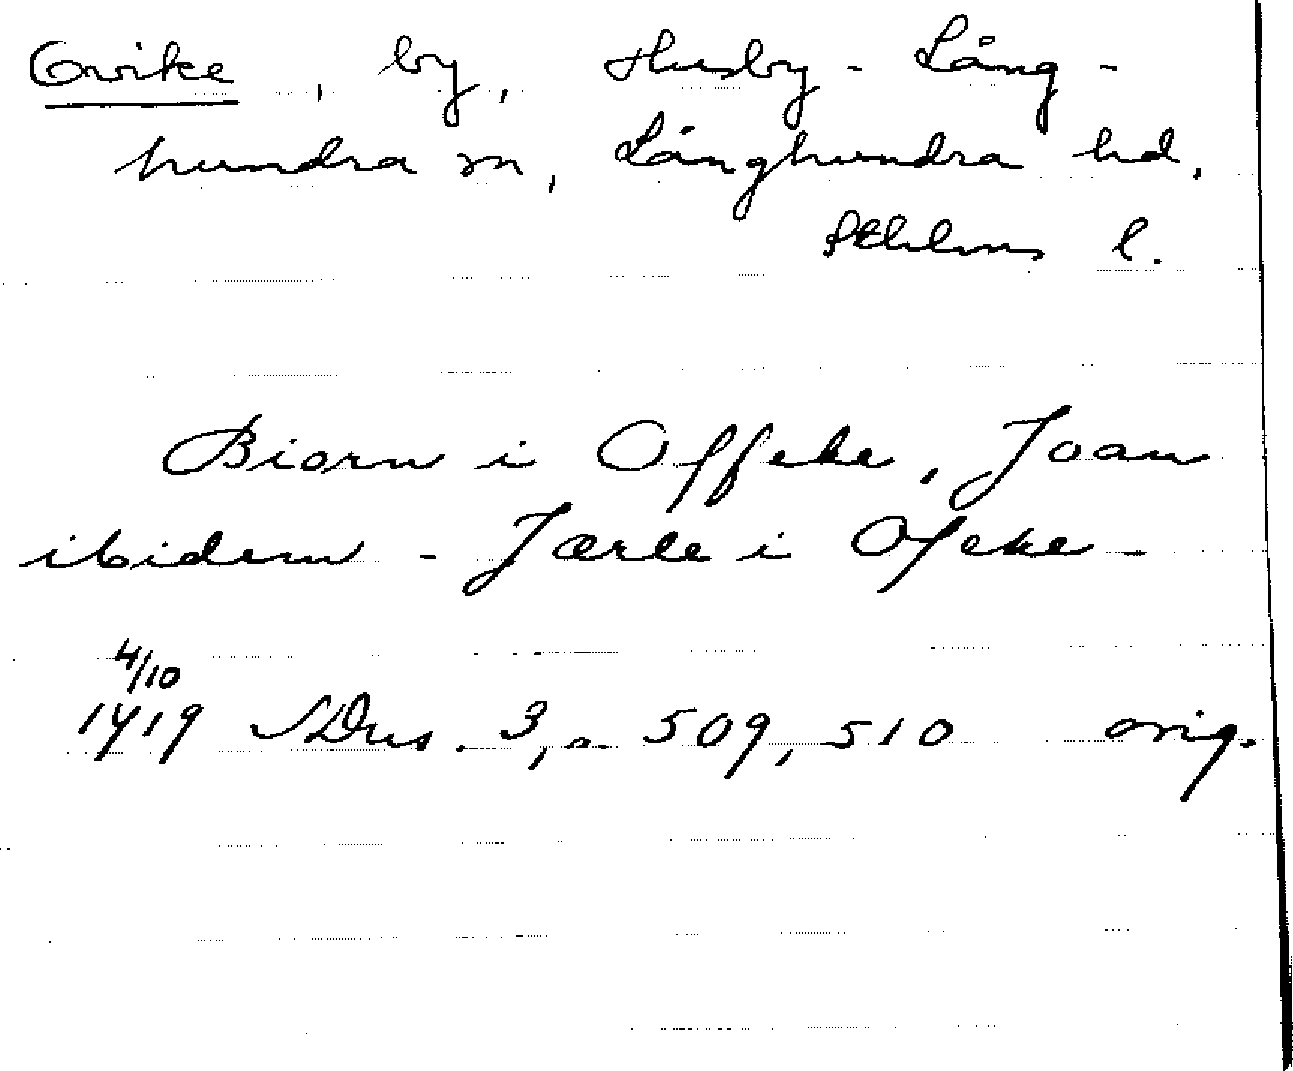 Ovike, by, Husby-Lång-
hundra sn, Långhundra hd,
Sthlms l.
Biorn i Offeke, Joan
ibidem - Jærle i Ofeke -
4/10
1419 SDns 3, s. 509, 510 orig.